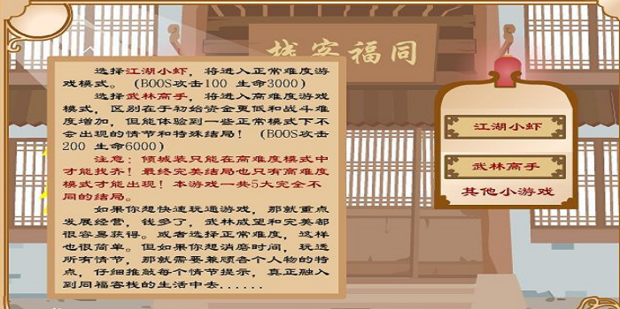 栈客福同
选择江湖小虾，将进入正常难度游
戏模式。（BOOS攻击100 生命3000）
选择武林高手，将进入高难度游戏
模式，区别在于初始资金更低和战斗难
度增加，但能体验到一些正常模式下不
会出现的情节和特殊结局！（BOOS攻击
200 生命6000）
注意：倾城装只能在高难度模式中
才能找齐！最终完美结局也只有高难度
模式才能出现！本游戏一共5大完全不
同的结局。
如果你想快速玩通游戏，那就重点
发展经营，钱多了，武林威望和完美都
很容易获得。或者选择正常难度，这样
也很简单。但如果你想消磨时间，玩透
所有情节，那就需要兼顾各个人物的特
点，仔细推敲每个情节提示，真正融入
到同福客栈的生活中去......
江湖小虾
武林高手
其他小游戏